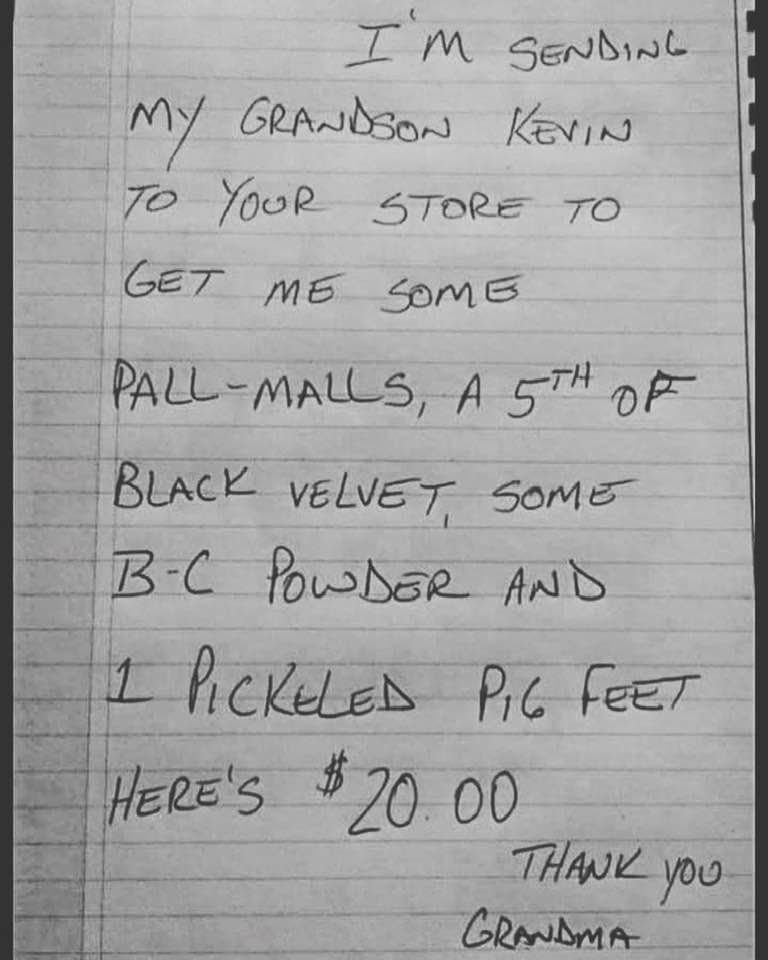 I'M SENDING
MY GRANDSON KEVIN
TO YOUR STORE TO
GET ME SOME
PALL-MALLS, A 5TH OF
BLACK VELVET, SOME
B-C POWDER AND
1 PICKELED PIG FEET
HERE'S $20.00
THANK YOU
GRANDMA